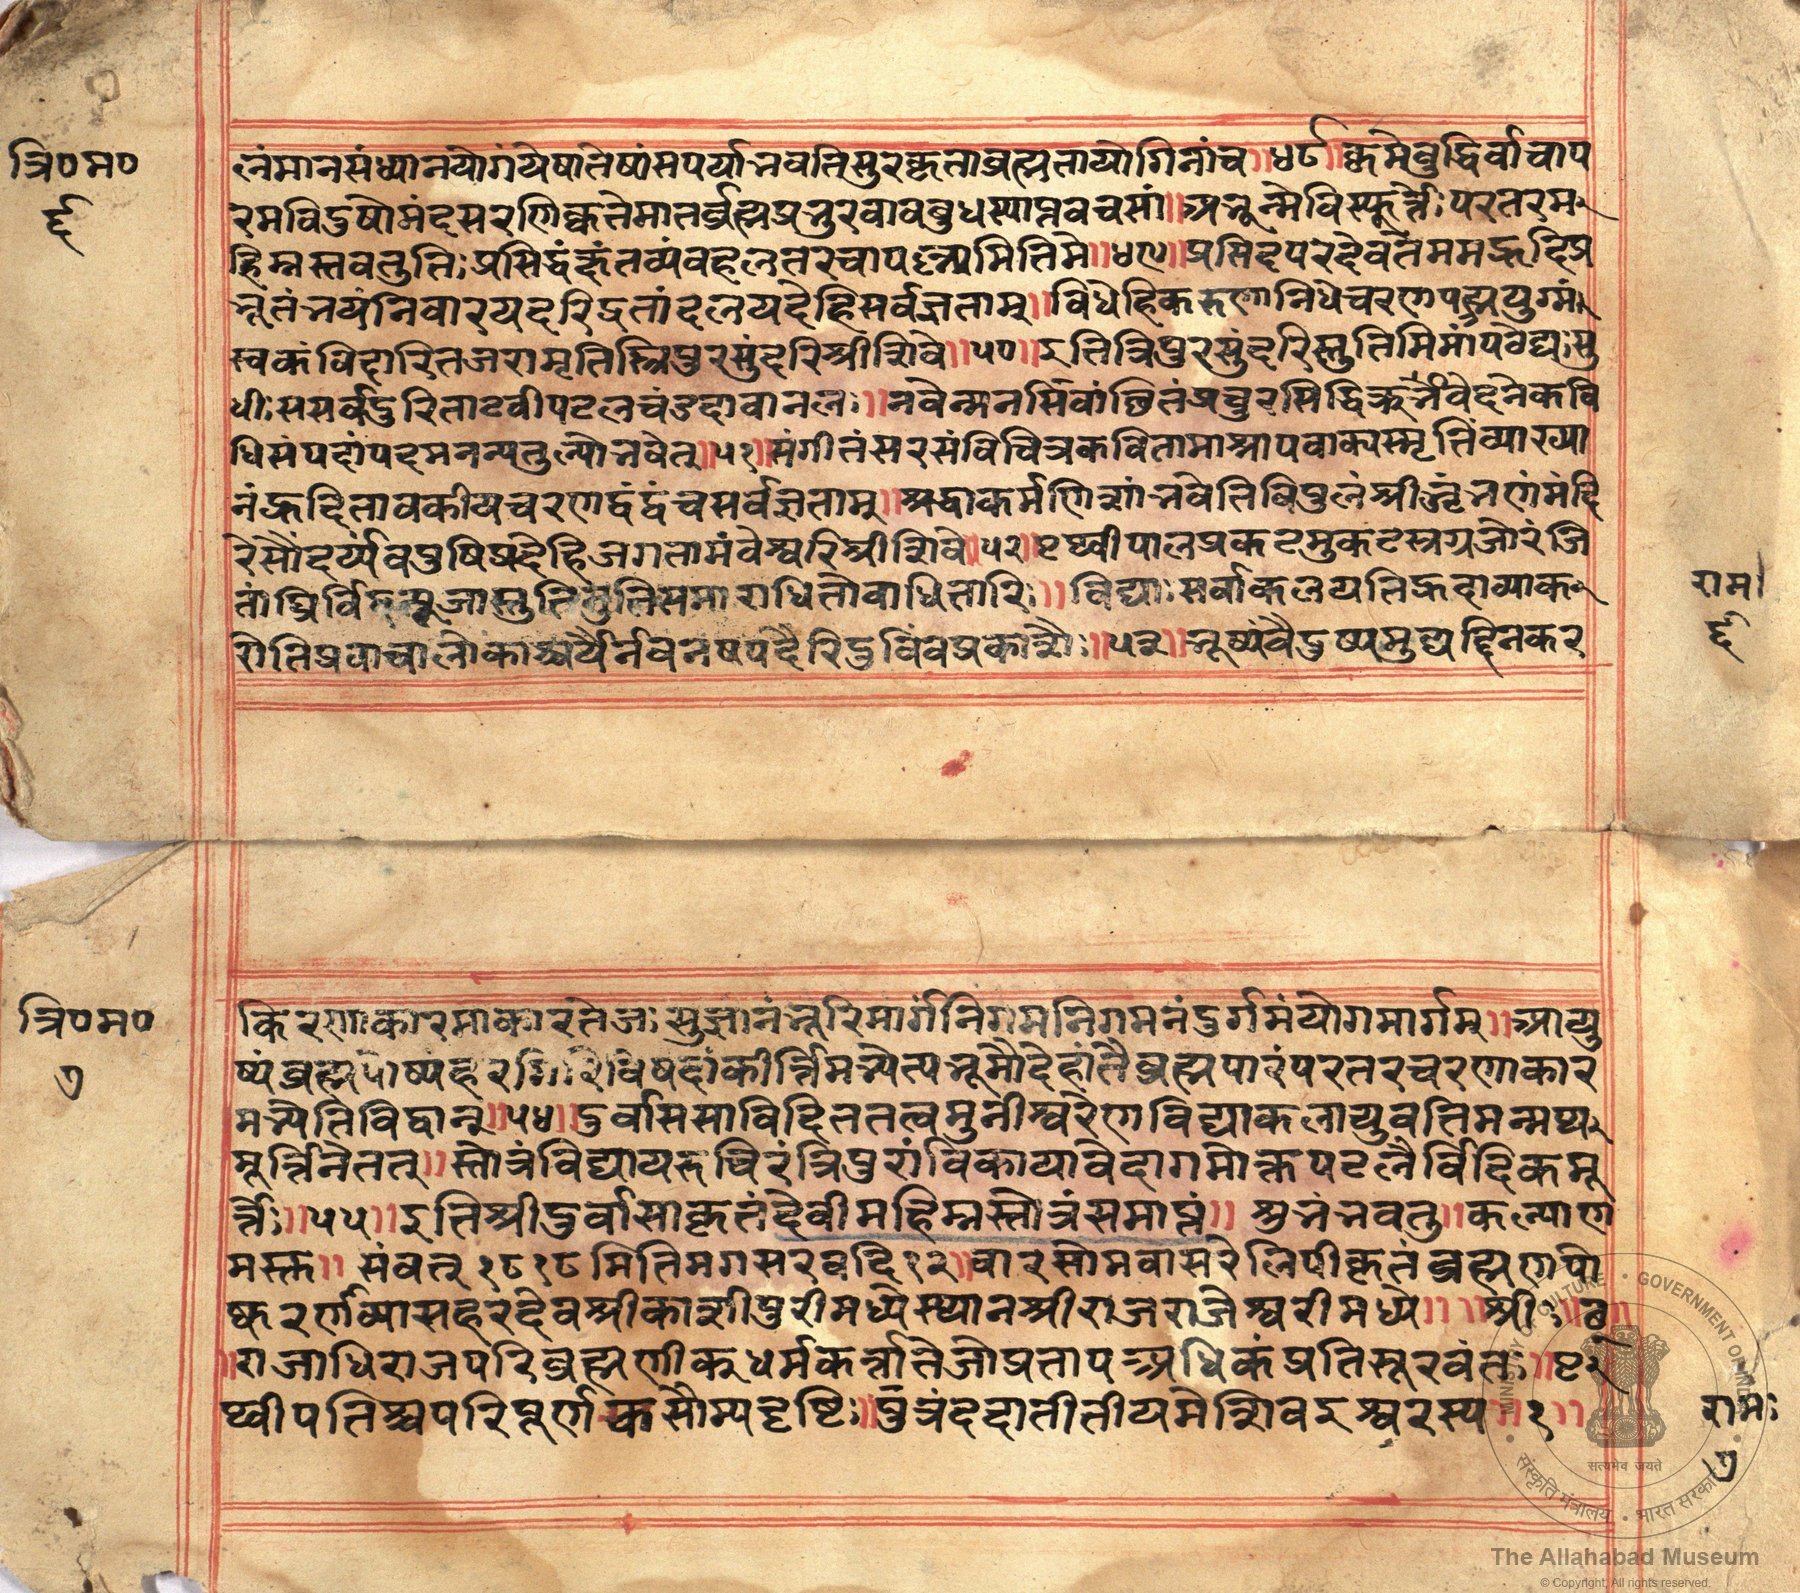 त्रि०म०
६
लंमानसंध्यानयोगंयेषांतेषांसपर्याभवतिसुरकृताब्रह्मतायोगिनांच॥४८॥क्वमेबुद्धिर्वाचाप
रमविदुषोमंदसरणिक्वतेमातर्ब्रह्मप्रभुरवावबुधस्याप्तवचसां॥अभून्मेविस्फूर्त्तेःपरतरम
हिम्नस्तवनुतिःप्रसिद्धंक्षंतव्यंवहलतरचापल्यमितिमे॥४९॥प्रसिदपरदेवतेममहृदिप्र
भूतंभयंनिवारयदरिद्रतांदलयदेहिसर्वज्ञताम्॥विधेहिकरुणानिधेचरणपद्मयुग्मं
स्वकंविदारितजरामृतित्रिपुरसुंदरिश्रीशिवे॥५०॥इतित्रिपुरसुंदरिस्तुतिमिमांपठेद्यःसु
धीःससर्वदुरिताटवीपटलचंडदावानलः॥भवेन्मनसिवांछितंप्रचुरसिद्धिर्ऋर्भवेदनेकवि
धिसंपदांपदमनन्यतुल्योभवेत्॥५१॥संगीतंसरसंविचित्रकवितामाम्नापवाक्यस्मृतिंव्याख्या
नंहृदितावकीयचरणद्वंद्वंचसर्वज्ञताम्॥श्रद्धाकर्मणिशांभवेतिविपुलंश्रीजृंभणंमंदि
रेसौंदर्य्यंवपुषिप्रदेहिजगतामंबेश्वरिश्रीशिवे॥५२॥पृथ्वीपालप्रकटमुकटस्त्रग्रजोरंजि
तांघ्रिर्विद्वत्पूजास्तुतिनुतिसमाराधितोबाधितारिः॥विद्याःसर्वाकलयतिहृदाव्याक
रोतिप्रवाचालोकाश्चर्यैर्नवनवपदैरिंदुबिंबप्रकाशैः॥५३॥भूष्यंवैदुष्यमुद्यद्दिनकर
राम।
६
त्रि०म०
७
किरणाकारमाकारतेजःसुज्ञानंभूरिमार्गंनिगमनिगमनंदुर्गमंयोगमार्गम्॥आयु
ष्यंब्रह्मपोष्यंहरगिरिविषदांकीर्त्तिमभ्येत्यभूमौदेहांतेब्रह्मपारंपरतरचरणाकार
मभ्येतिविद्वान्॥५४॥दुर्वाससाविदिततत्वमुनीश्वरेणविद्याकलायुवतिमन्मथ
मूर्त्तिनैतत्॥स्तोत्रंविद्यायरुचिरंत्रिपुरांविकायावेदागमोक्तपटलैर्विदिकमू
र्त्तेः॥५५॥इतिश्रीदुर्वासाकृतंदेवीमहिम्नस्तोत्रंसमाप्तं॥शुभंभवतु॥कल्याण
मस्तु॥संवत्१८१८मितिमगसरवदि१२॥वारसोमवासरेलिपीकृतंब्रह्मणपो
ष्करर्णव्यासहरदेवश्रीकाशीपुरीमध्येस्थानश्रीराजराजेश्वरीमध्ये॥श्री॥
॥राजाधिराजपरिब्रह्मणीकुधर्मकर्त्तातेजोप्रतापअधिकंप्रतिसूरवंतः॥पृ
थ्वीपतिश्चपरिपूर्णकसौम्यदृष्टिः॥पुत्रंददातीतीयमेशिवइश्वरस्य॥१॥
रामः
७
MINISTRY OF CULTURE • GOVERNMENT OF INDIA
सत्यमेव जयते
संस्कृति मंत्रालय • भारत सरकार
The Allahabad Museum
© Copyright, All rights reserved.